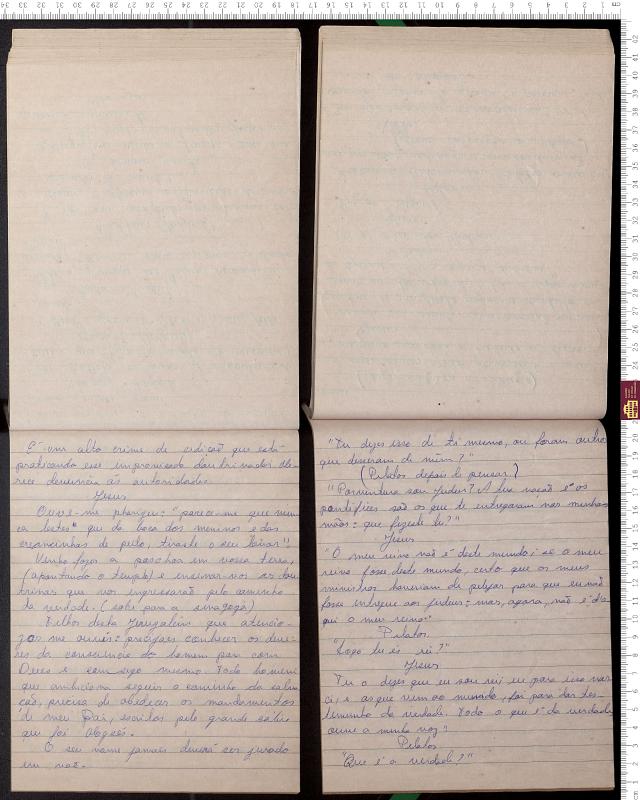 É um alto crime de sedição que está
praticando esse improvisado doutrinador
denuncia às autoridades.
Jesus
Ouve-me phariseu: "parece-me que nun-
ca lestes" que da boca dos meninos e das
creancinhas de peito, tiraste o seu louvor"!
Venho fazer a paschoa em vossa terra,
(apontando o templo) e ensinar-vos as dou-
trinas que vos ingressarão pelo caminho
da verdade. (sobe para a sinagoga)
Filhos desta Jerusalém que atencio-
sos me ouvis: precisaes conhecer os deve-
res da consciencia do homem para com
Deus e com sigo mesmo. Todo homem
que ambiciona seguir o caminho da salva-
ção, precisa de obedecer os mandamentos
de meu Pai, escritos pelo grande sabio
que foi Moysés.
O seu nome jamais deverá ser jurado
em vão.
"Tu dizes isso de ti mesmo, ou foram outros
que disseram de mim?"
(Pilatos depois de pensar)
"Porventura sou judeu? A tua nação e os
pontifices são os que te entregaram nas minhas
mãos: que fizeste tu?"
Jesus
"O meu reino não é deste mundo; se o meu
reino fosse deste mundo, certo que os meus
ministros haveriam de pelejar para que eu não
fosse entregue aos judeus; mas, agora, não é da-
qui o meu reino."
Pilatos
"Logo tu és rei?"
Jesus
Tu o dizes que eu sou rei eu para isso nas-
ci, e ao que vim ao mundo, foi para dar tes-
timunho da verdade. Todo o que é da verdade
ouve a minha voz."
Pilatos
"Que é a verdade?"